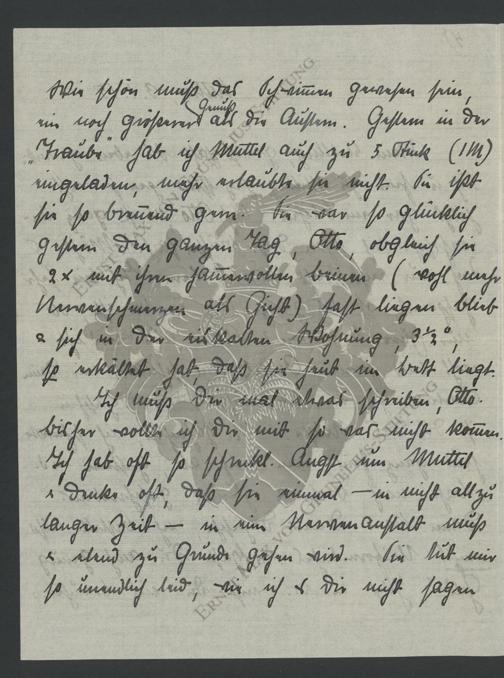 Wie schön muß das Schwimmen gewesen sein,
ein noch größerer Genuß als die Austern. Gestern in der
„Traube" hab ich Muttel auch zu 5 Stück (1 M)
eingeladen, mehr erlaubte sie nicht. Sie ißt
sie so brennend gern. Sie war so glücklich
gestern den ganzen Tag, Otto, obgleich sie
2 x mit ihren jammervollen beinen (wohl mehr
Nervenschmerzen als Gicht) fast liegen blieb
& sich in der eiskalten Wohnung, 3½°,
so erkältet hat daß sie heut im bett liegt.
Ich muß Dir mal etwas schreiben, Otto.
bisher wollte ich Dir mit so was nicht kommen.
Ich hab oft so schreckl. Angst um Muttel
& denke oft, daß sie einmal — in nicht allzu
langer Zeit — in eine Nervenanstalt muß
& elend zu Grunde gehen wird. Sie tut mir
so unendlich leid, wie ich es Dir nicht sagen